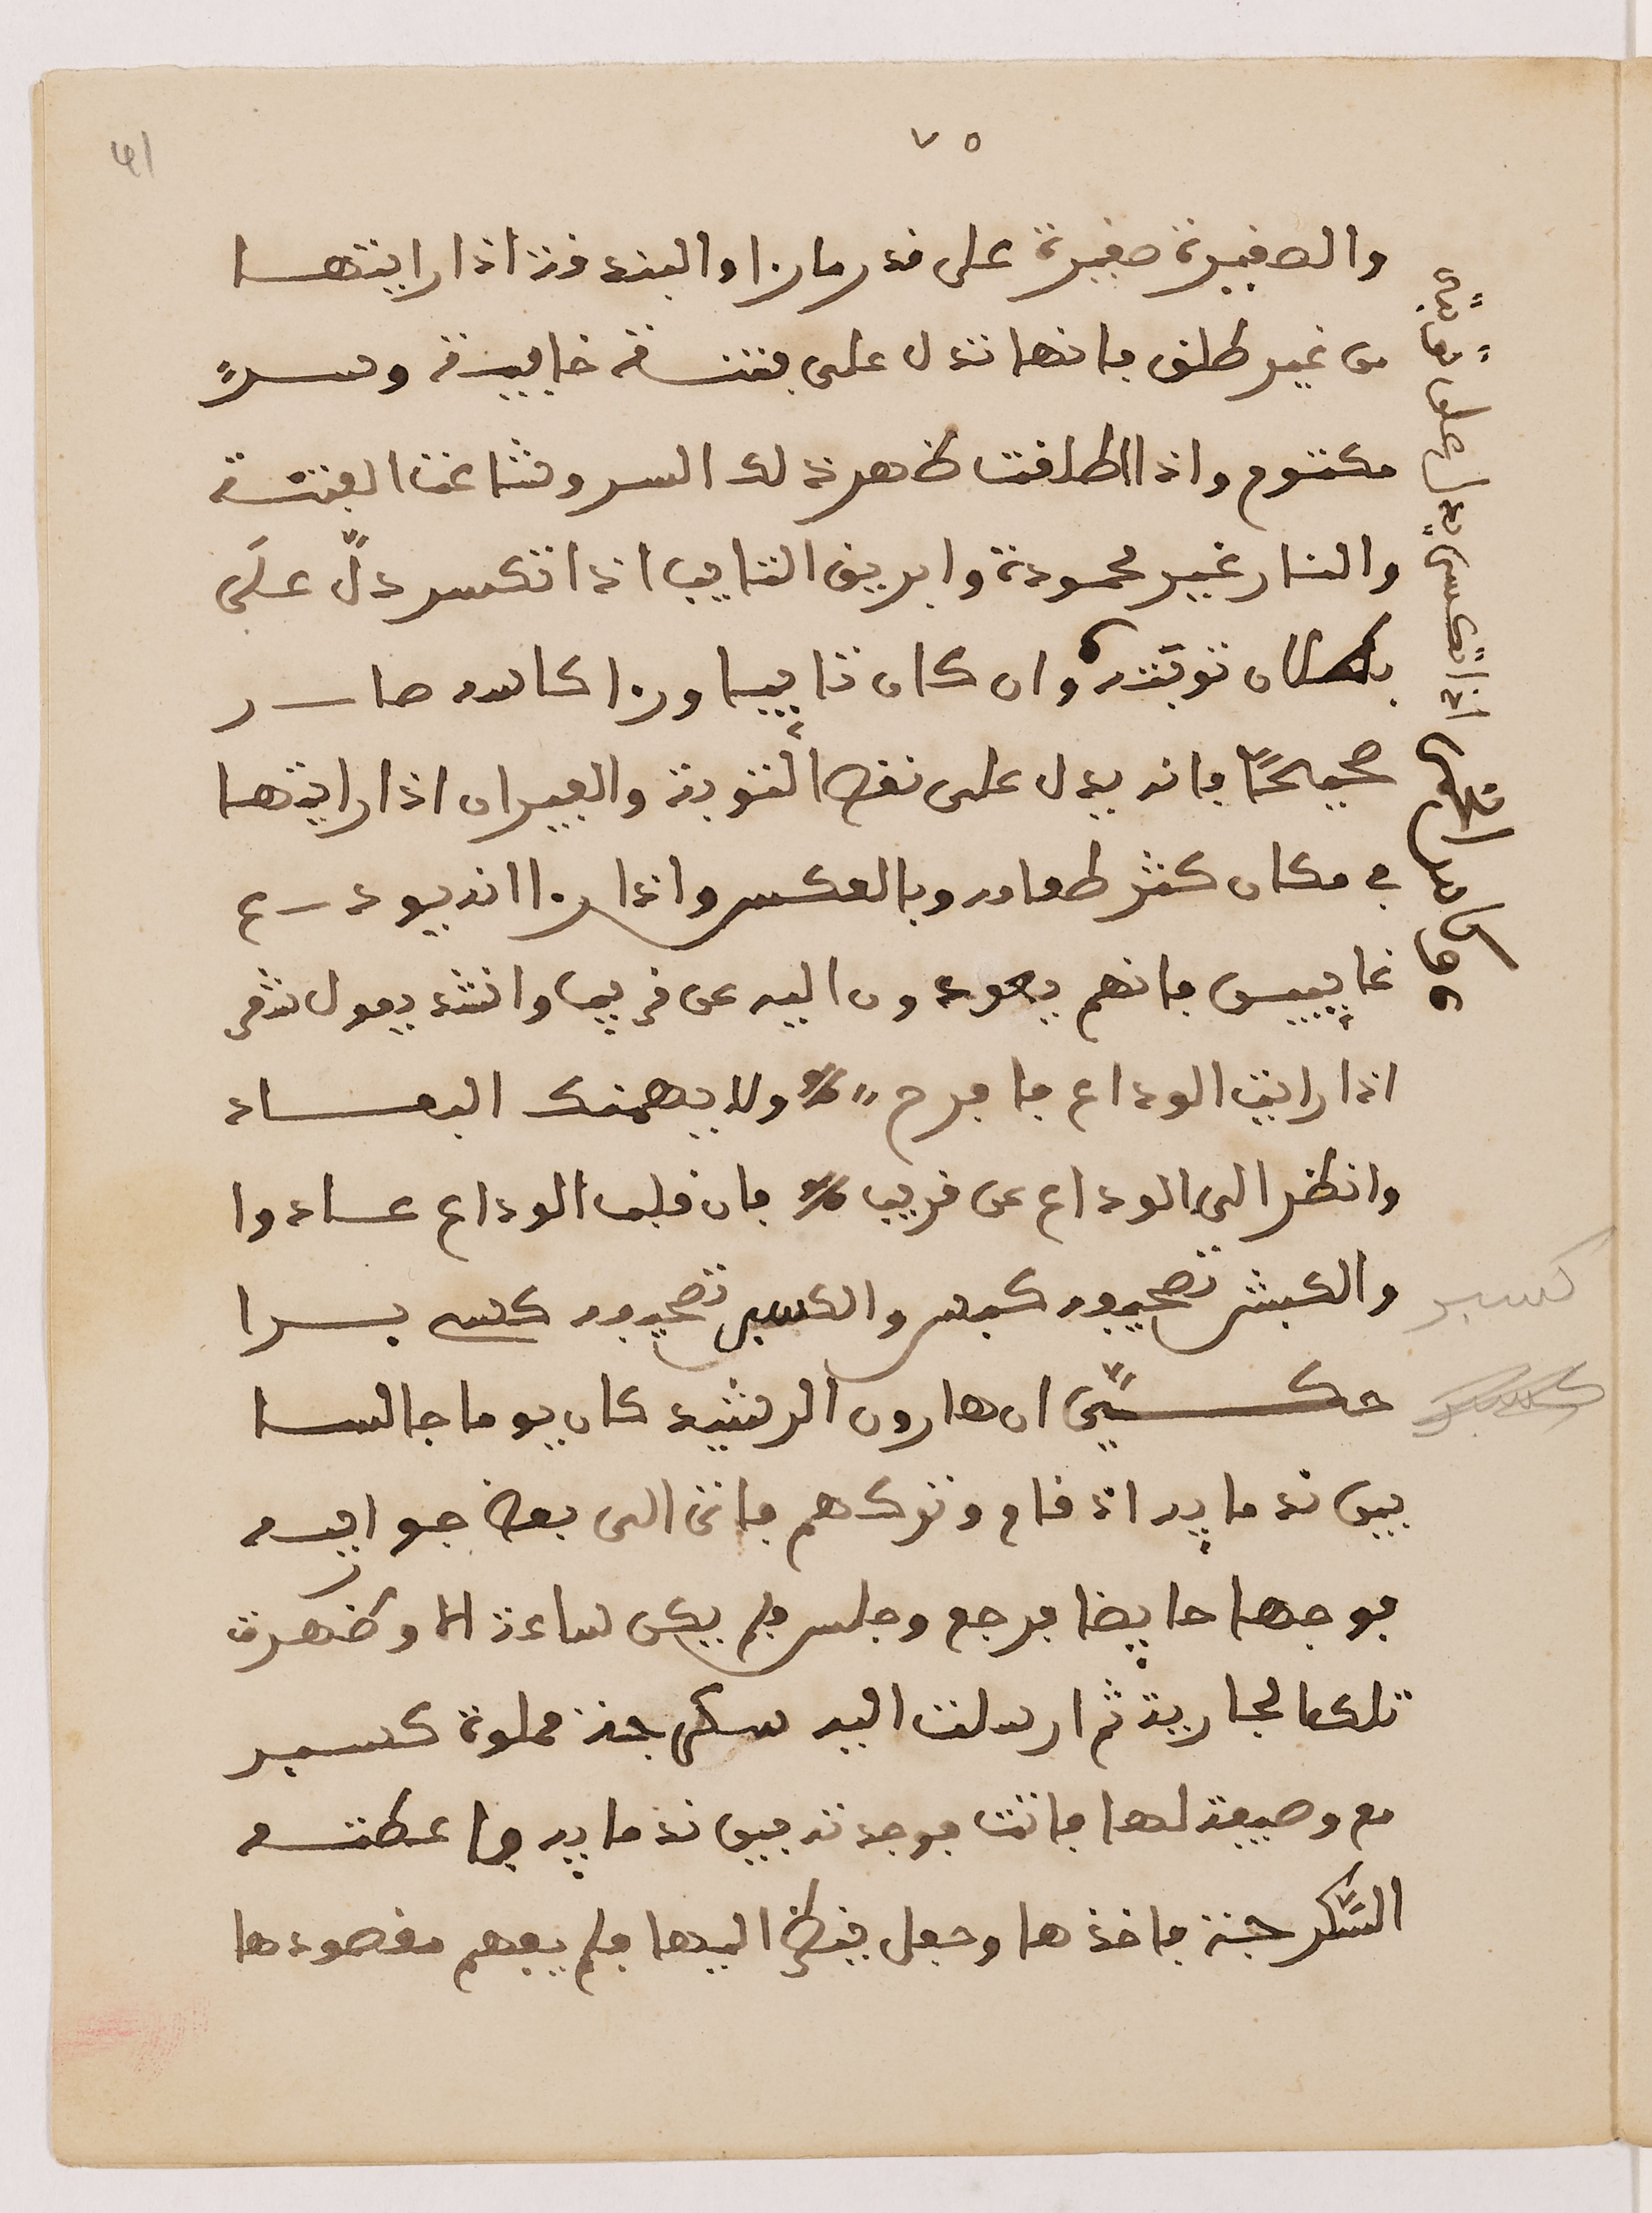 ٧٥
41
والصغيرة صغيرة على قدر ما را والبندقة اذا رايتها
من غير طلق فانها تدل على فتنة خايبة وسرّ
مكتوم واذا اطلقت ظهر ذلك السر وشاعت الفتنة
والنار غير محمودة وابريق التايب اذا انكسر دلّ على
بطلان توبته وان كان تايبا ورا كاسه صار
صحيحًا فانه يدل على نقض التوبة والفيران اذا رايتها
في مكان كثر طعامه وبالعكس واذا را انه يودع
غايبين فانهم يعودون اليه عن قريب وانشد يقول شعر
اذا رايت الوداع فافرح ولا يهمنك البعاد
وانظر الى الوداع عن قريب فان قلب الوداع عادوا
والكبش تصحيفه كيس والكسبر تصحيفه كس يرا
حكيّ ان هارون الرشيد كان يوما جالسا
بين ندمايه اذ قام وتركهم فاتى الى بعض جواريه
فوجدها حايضا فرجع وجلس فلم يكن ساعة الا وطهرت
تلك الجارية ثم ارسلت اليه سكرجة مملوة كسبر
مع وصيفة لها فاتت فوجدته بين ندمايه فاعطته
السّكرجة فاخذها وجعل ينظر اليها فلم يفهم مقصودها
اذا انعكس يدل على
كسبر
كسبر